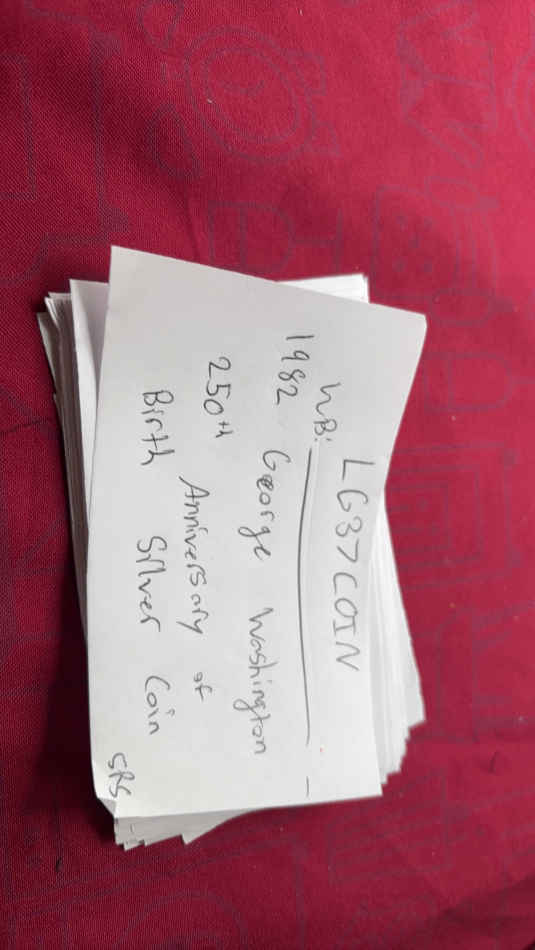 LG37COIN
WB:
1982 George Washington
250th Anniversary of
Birth Silver Coin